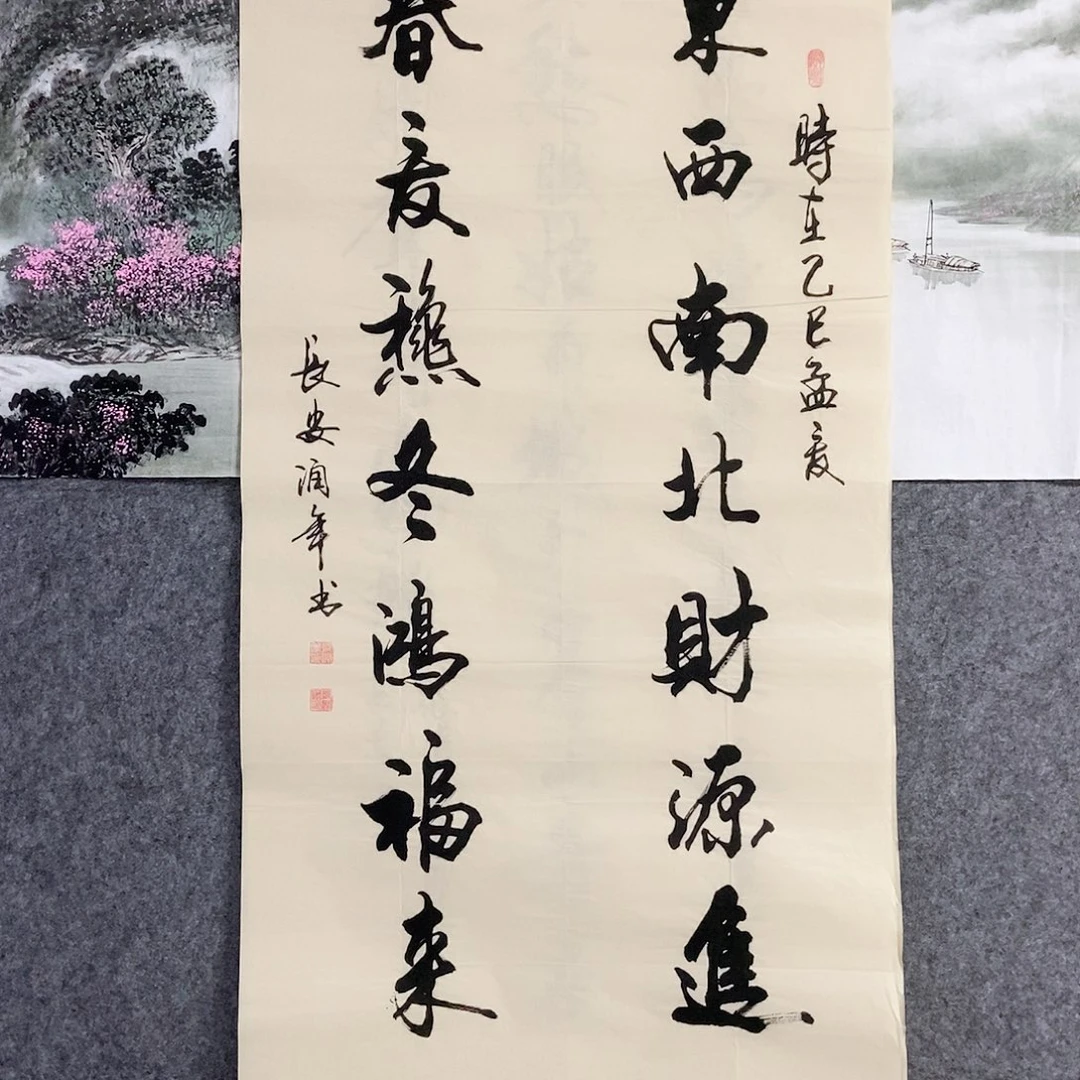 時在乙巳孟夏
東西南北財源進
春夏穐冬鴻福来
長安润年书